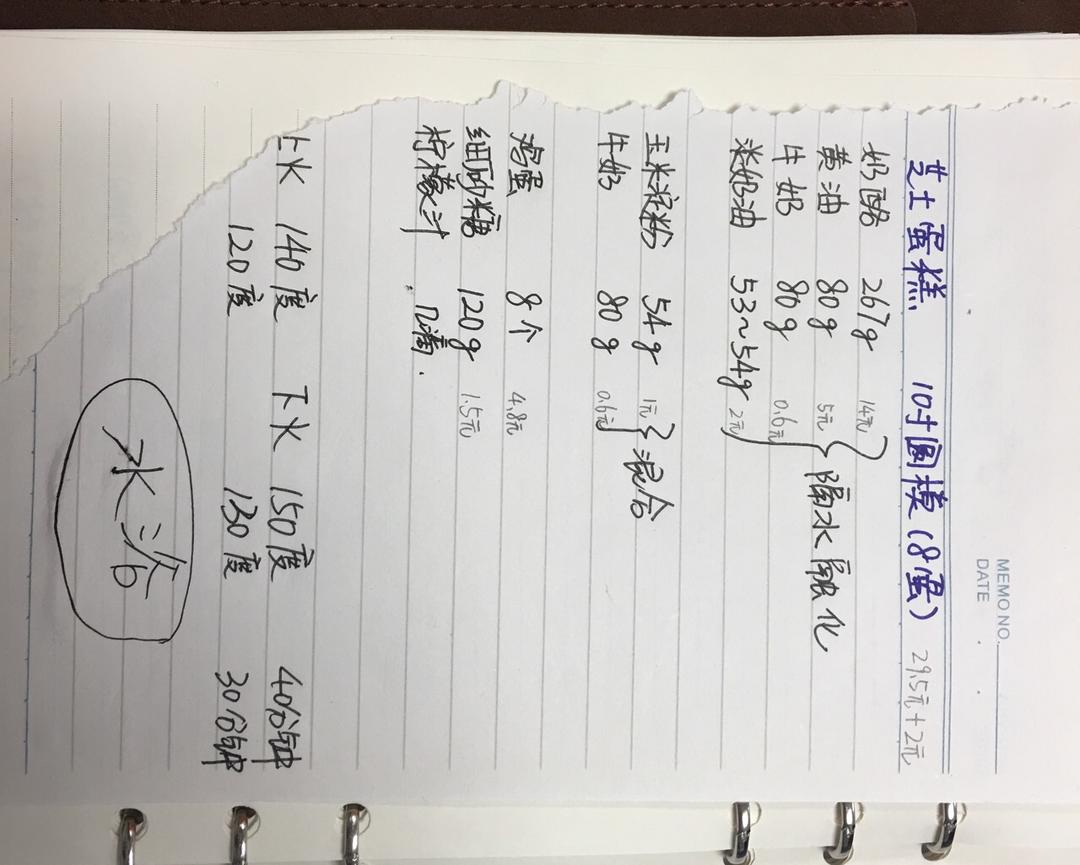 MEMO NO.
DATE
芝士蛋糕 10寸圆模(8蛋) 29.5元+2元
奶酪 267g 14元
黄油 80g 5元
牛奶 80g 0.6元
淡奶油 53~54g 2元
隔水融化
玉米淀粉 54g 1元
牛奶 80g 0.6元
混合
鸡蛋 8个 4.8元
细砂糖 120g 1.5元
柠檬汁 几滴.
上火 140度 下火 150度 40分钟
120度 130度 30分钟
水浴